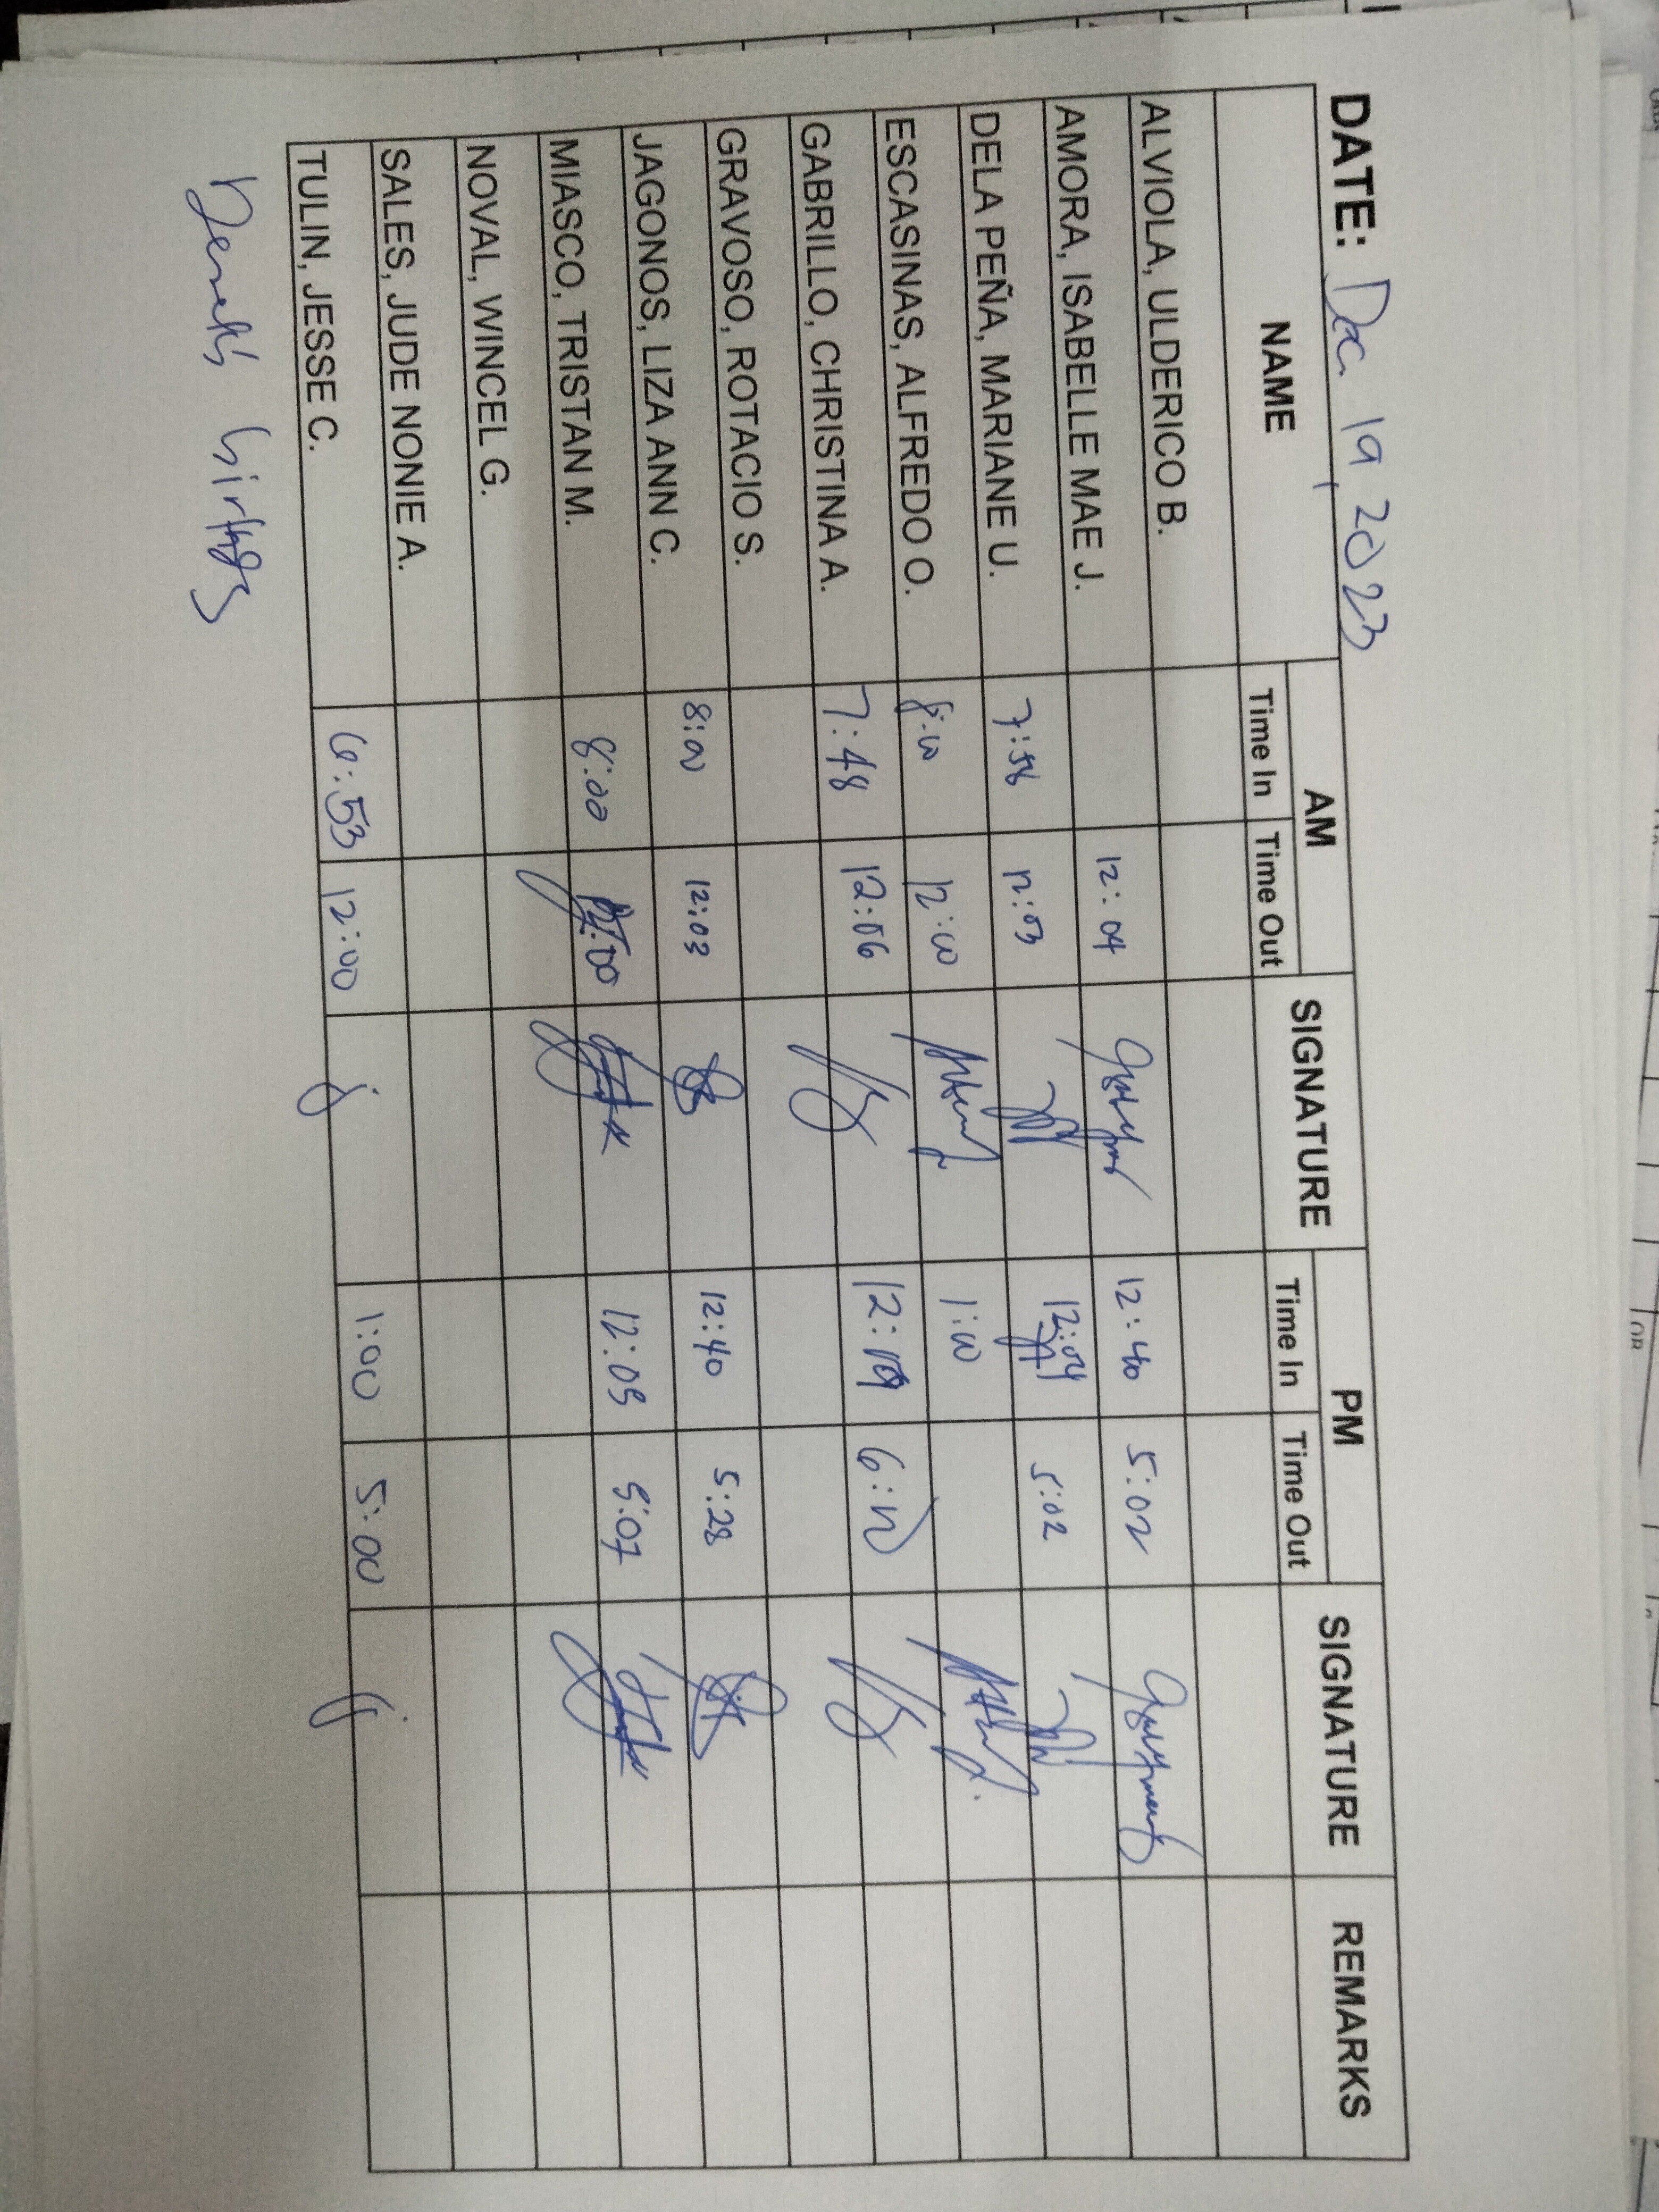 DATE: Dec. 19, 2023
NAME AM SIGNATURE PM SIGNATURE REMARKS
Time In Time Out Time In Time Out
ALVIOLA, ULDERICO B.
AMORA, ISABELLE MAE J. 12:04 12:40 5:02
DELA PEÑA, MARIANE U. 7:58 12:03 5:02
ESCASINAS, ALFREDO O. 8:00 12:00 1:00
GABRILLO, CHRISTINA A. 7:48 12:06 12:09 6:12
GRAVOSO, ROTACIO S.
JAGONOS, LIZA ANN C. 8:00 12:03 12:40 5:28
MIASCO, TRISTAN M. 8:00 12:00 12:05 5:07
NOVAL, WINCEL G.
SALES, JUDE NONIE A.
TULIN, JESSE C. 6:53 12:00 1:00 5:00